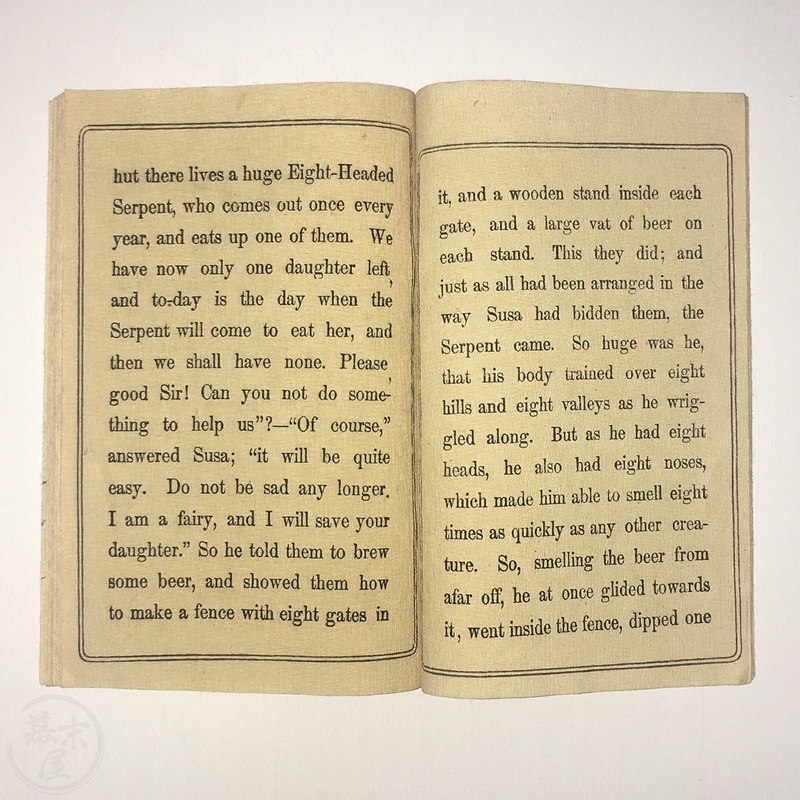 hut there lives a huge Eight-Headed
Serpent, who comes out once every
year, and eats up one of them. We
have now only one daughter left,
and to-day is the day when the
Serpent will come to eat her, and
then we shall have none. Please,
good Sir! Can you not do some-
thing to help us”?—“Of course,”
answered Susa; “it will be quite
easy. Do not be sad any longer.
I am a fairy, and I will save your
daughter.” So he told them to brew
some beer, and showed them how
to make a fence with eight gates in
it, and a wooden stand inside each
gate, and a large vat of beer on
each stand. This they did; and
just as all had been arranged in the
way Susa had bidden them, the
Serpent came. So huge was he,
that his body trained over eight
hills and eight valleys as he wrig-
gled along. But as he had eight
heads, he also had eight noses,
which made him able to smell eight
times as quickly as any other crea-
ture. So, smelling the beer from
afar off, he at once glided towards
it, went inside the fence, dipped one
幕末
屋